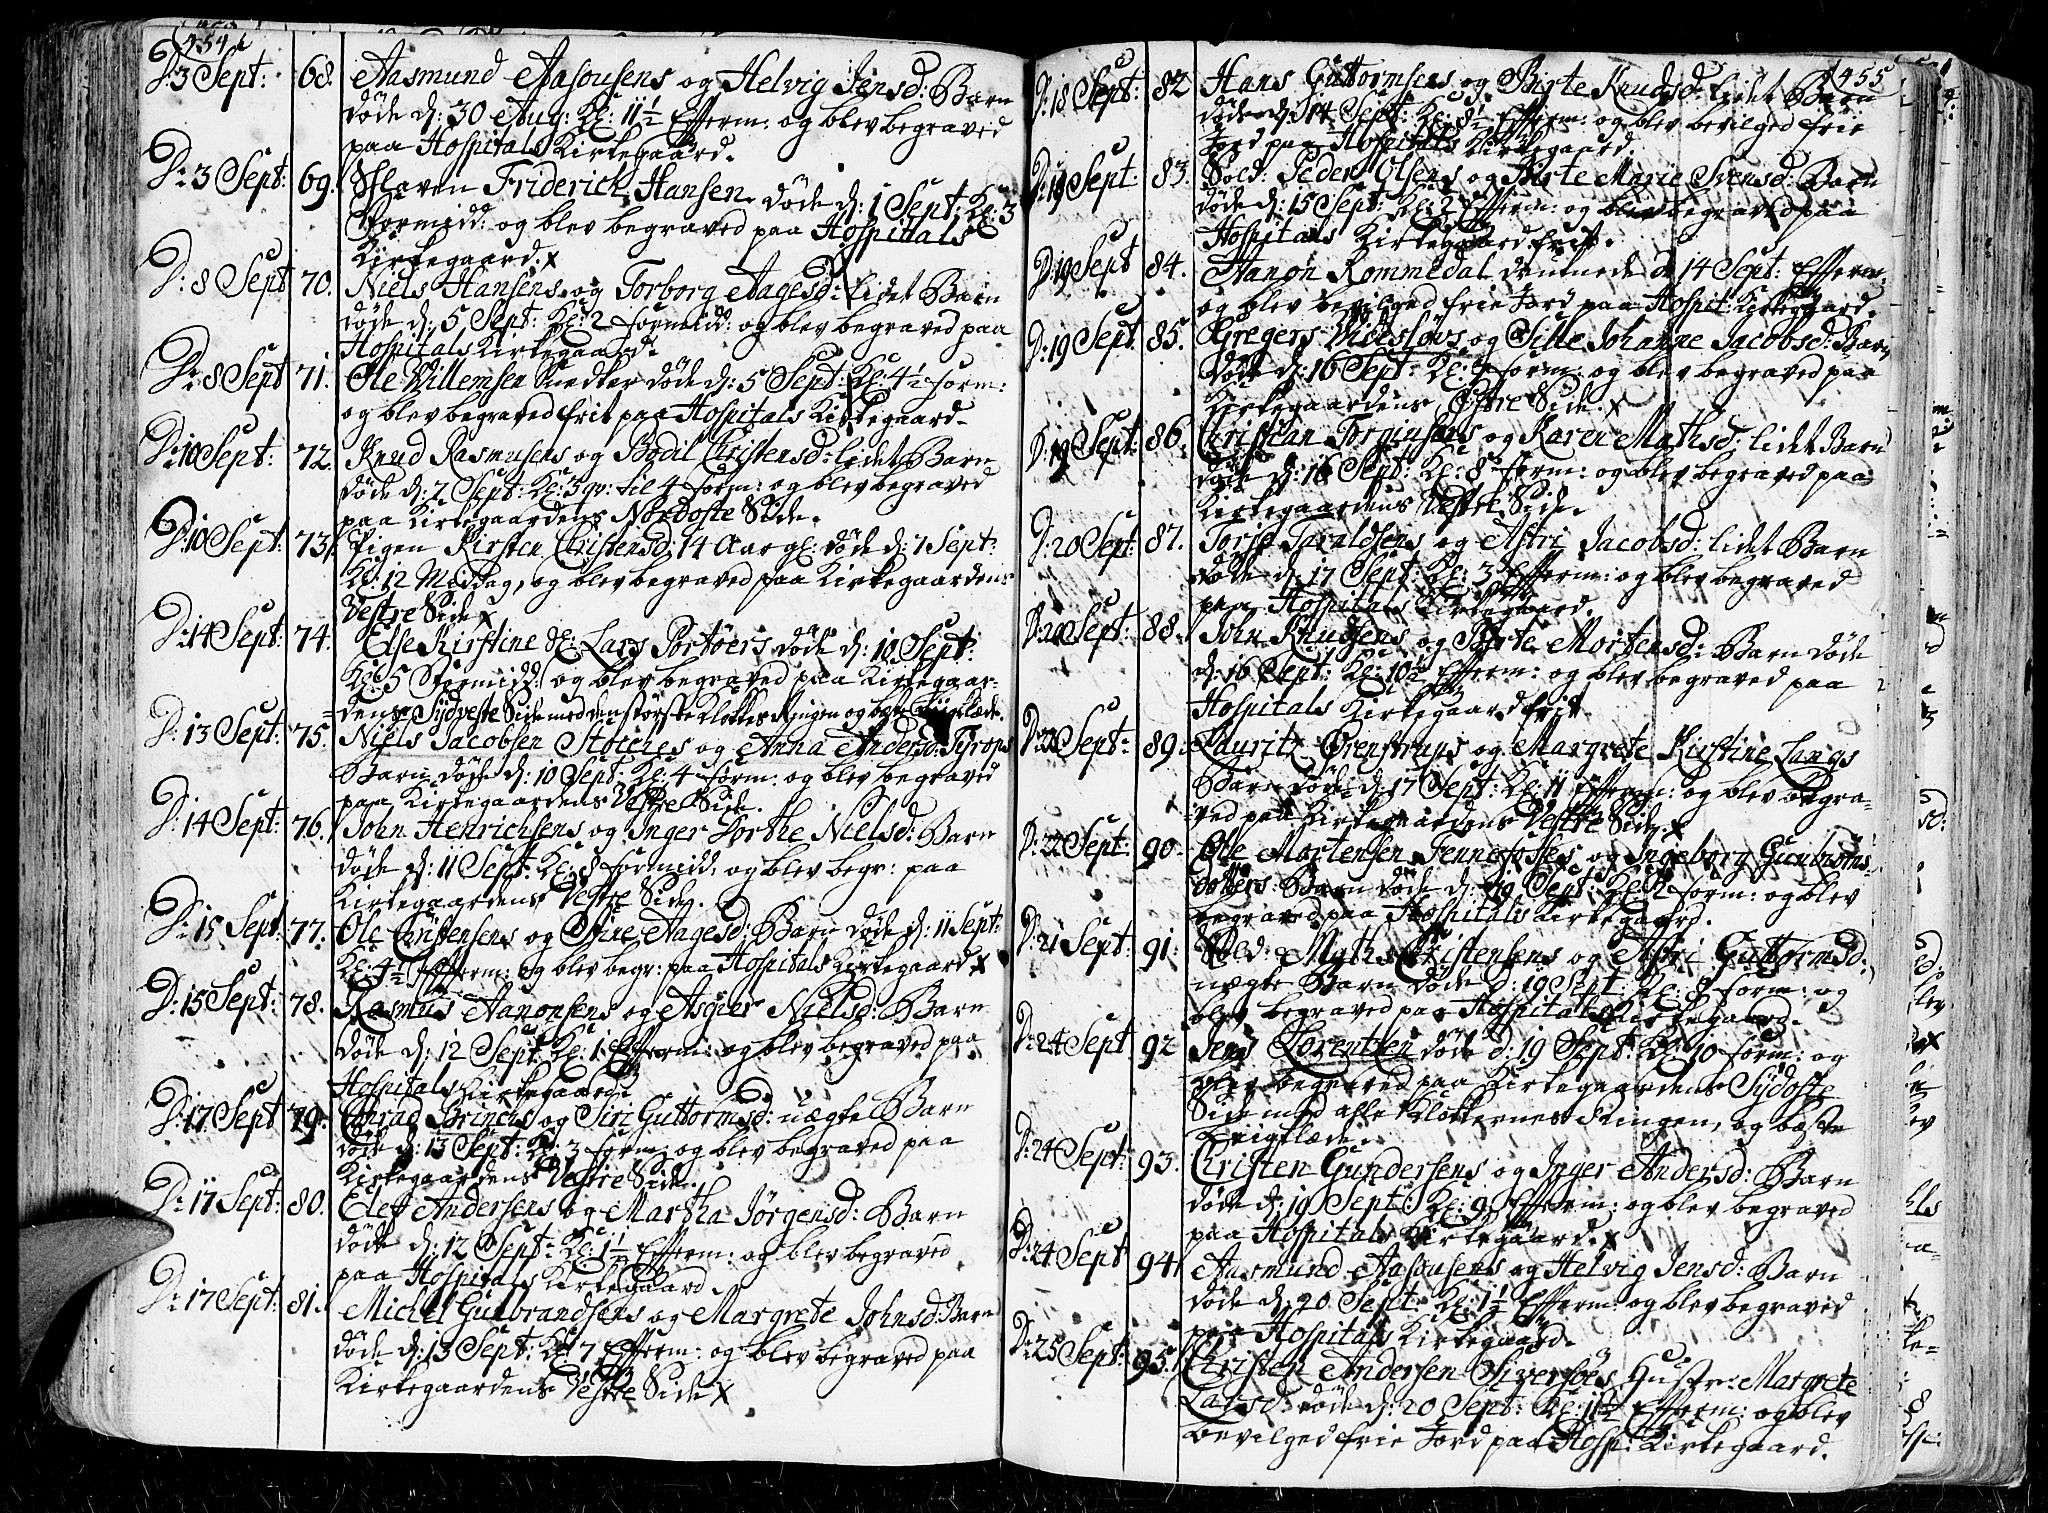 454
D: 3 Sept: 68. Aasmund Aasousens og Helvig Jensd: Barn
døde d: 30 Aug: Kl: 11½ Efterm: og blev begraved
paa Hospitals Kirkegaard.
D: 3 Sept: 69. Slaven Friderich Hansen døde d: 1 Sept: Kl: 3
Formidd: og blev begraved paa Hospitals
Kirkegaard. x
D: 8 Sept 70. Niels Hansens og Torborg Aagesd: lidet Barn
døde d: 5 Sept: Kl: 2 formidd: og blev begraved paa
Hospitals Kirkegaard.
D: 8 Sept 71. Ole Willemsen Snedker døde d: 5 Sept: Kl: 4½ form:
og blev begraved frit paa Hospitals Kirkegaard.
D: 10 Sept: 72. Knud Rasmusens og Bodil Christensd: lidet Barn
døde d: 7 Sept: Kl: 3 qv: til 4 form: og blev begraved
paa Kirkegaardens Nordoste Side.
D: 10 Sept: 73. Pigen Kirsten Christensd: 14 Aar gl: døde d: 7 Sept:
Kl: 12 Middag, og blev begraved paa Kirkegaardens
Vestre Side x
D: 14 Sept: 74. Else Kirstine Lars Portøers døde d: 10 Sept:
Kl: 5 Formidd: og blev begraved paa Kirkegaar-
dens Sydveste Side med den største Klokkes Ringen og beste Liigklæde.
D: 13 Sept: 75. Niels Jacobsen Stocches og Anna Andersd: Pyrops
Barn døde d: 10 Sept: Kl: 4 form: og blev begraved
paa Kirkegaardens Vestre Side.
D: 14 Sept: 76. John Henrichsens og Inger Dorthe Nielsd: Barn
døde d: 11 Sept: Kl: 8 formidd: og blev begr: paa
Kirkegaardens Vestre Side.
D: 15 Sept 77. Ole Christensens og Aagesd: Barn døde d: 11 Sept:
Kl: 4½ Efterm: og blev begr: paa Hospitals Kirkegaard x
D: 15 Sept: 78. Rasmus Aanonsens og Asgier Nielsd: Barn
døde d: 12 Sept: Kl: 1 Efterm: og blev begraved paa
Hospitals Kirkegaard.
D: 17 Sept 79. Conrad Brinchs og Siri Guttormsd: uægte Barn
døde d: 13 Sept: Kl: 3 form: og blev begraved paa
Kirkegaardens Vestre Side.
D: 17 Sept: 80. Elef Andersens og Martha Jørgensd: Barn
døde d: 12 Sept: Kl: 1½ Efterm: og blev begraved
paa Hospitals Kirkegaard.
D: 17 Sept: 81. Michel Gulbrandsens og Margrete Johnsd: Barn
døde d: 13 Sept: Kl: 7 Efterm: og blev begraved paa
Kirkegaardens Vestre Side x
455
D: 18 Sept: 82 Hans Guttormsens og Birte Knudsd: lidet Barn
døde d: 14 Sept: Kl: Efterm: og blev bevilged frie
Jord paa Hospitals Kirkegaard.
D: 19 Sept: 83. Sold: Peder Olsens og Birte Marie Svensd: Barn
døde d: 15 Sept: Kl: 2 Efterm: og blev begraved paa
Hospitals Kirkegaard frit.
D: 19 Sept 84. Aanon Rommedal druknede d 14 Sept: Efterm:
og blev bevilged frie Jord paa Hospit: Kirkegaard.
D: 19 Sept: 85. Gregers Videsløvs og Sille Johanne Jacobsd: Barn
døde d: 16 Sept: Kl: form: og blev begraved paa
Kirkegaardens Side. x
D: 19 Sept: 86. Christian Torginsens og Karen Mathsd: lidet Barn
døde d: 16 Sept: Kl: 8 form: og blev begraved paa
Kirkegaardens Vestre Side.
D: 20 Sept: 87. Torjs Taraldsens og Astri Jacobsd: lidet Barn
døde d: 17 Sept: Kl: 3 Efterm: og blev begraved
paa Hospitals Kirkegaard.
D: 20 Sept: 88. John Knudsens og Birte Mortensd: Barn døde
d: 16 Sept: Kl: 10½ Efterm: og blev begraved paa
Hospitals Kirkegaard frit.
D: 22 Sept: 89. Lauritz Ørenstrups og Margrete Kirstine Langs
Barn døde d: 17 Sept: Kl: 11 Efterm: og blev begra-
ved paa Kirkegaardens Vestre Side. x
D: 22 Sept: 90. Ole Mortensen Fennefosses og Ingeborg Gunbiørns-
dotters Barn døde d: 19 Sept: Kl: 2 form: og blev
begraved paa Hospitals Kirkegaard.
D: 21 Sept: 91. Sold: Myths Christensens og Astri Guttormsd:
uægte Barn døde d: 19 Sept: Kl: 8 form: og
blev begraved paa Hospitals Kirkegaard.
D: 24 Sept 92 Jens Lorentzen døde d: 19 Sept: Kl: 10 form: og
blev begraved paa Kirkegaardens Sydoste
Side med alle Klokkernes Ringen, og bæste
Liigklæde.
D: 24 Sept: 93. Christen Gundersens og Inger Andersd: Barn
døde d: 19 Sept: Kl: 9 Efterm: og blev begraved
paa Hospitals Kirkegaard. x
D: 24 Sept 94. Aasmund Aasousens og Helvig Jensd: Barn
døde d: 20 Sept: Kl: 1½ Efterm: og blev begraved
paa Hospitals Kirkegaard.
D: 25 Sept: 95. Christen Andersen Siversöes Hustr: Margrete
Larsd: døde d: 20 Sept: Kl: 11½ Efterm: og blev
bevilged frie Jord paa Hosp: Kirkegaard.